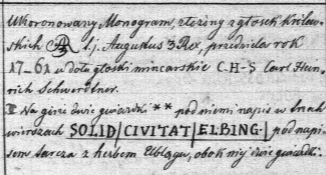 Ukoronowany Monogram, złożony z głosek królew-
skich AR t.j. Augustus 3 Rex, przedziela rok
17-61 u dołu głoski mincarskie C-H-S Carl Hein-
rich Schwerdtner.
II Na górze dwie gwiazdki ** pod niemi napis w trzech
wierszach SOLID/CIVITAT/ELBING. pod napi-
sem tarcza z herbem Elbląga, obok niej dwie gwiazdki.